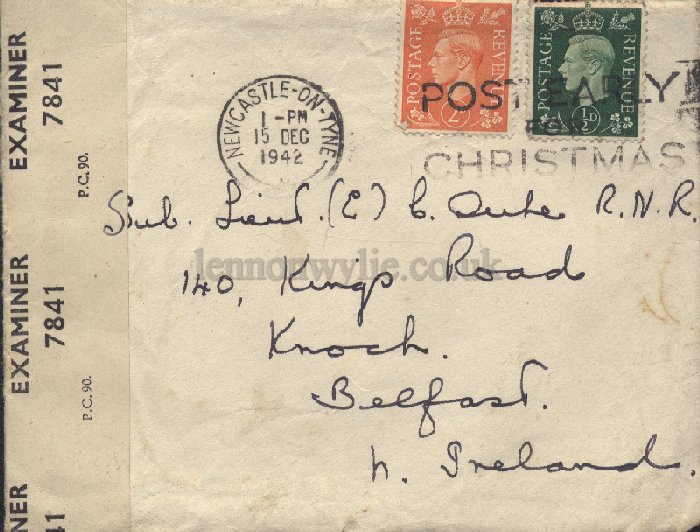 POSTAGE REVENUE 2D
POSTAGE REVENUE ½D
NEWCASTLE-ON-TYNE
1-PM
15 DEC
1942
POST EARLY
FOR
CHRISTMAS
Sub. Lieut. (E) C. R.N.R.
140, Kings Road
Knock.
Belfast.
N. Ireland.
lennonwylie.co.uk
EXAMINER 7841
P.C. 90.
EXAMINER 7841
P.C. 90.
NER 41